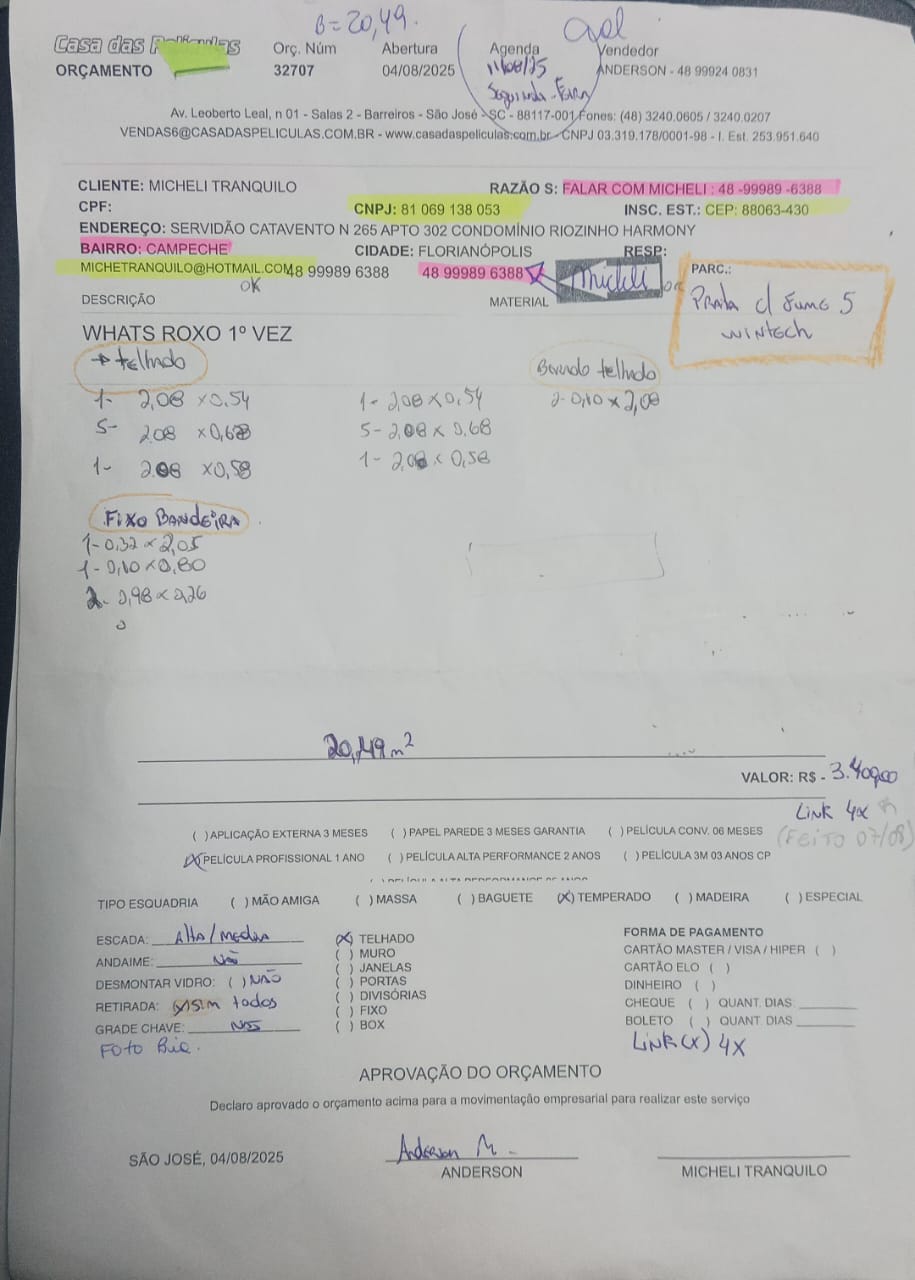 B = 20,49.
Casa das Películas
Orç. Núm Abertura Agenda Vendedor
ORÇAMENTO 32707 04/08/2025 11/08/25 ANDERSON - 48 99924 0831
Segunda-Feira
Av. Leoberto Leal, n 01 - Salas 2 - Barreiros - São José - SC - 88117-001 Fones: (48) 3240.0605 / 3240.0207
VENDAS6@CASADASPELICULAS.COM.BR - www.casadaspeliculas.com.br - CNPJ 03.319.178/0001-98 - I. Est. 253.951.640
CLIENTE: MICHELI TRANQUILO RAZÃO S: FALAR COM MICHELI : 48 -99989 -6388
CPF: CNPJ: 81 069 138 053 INSC. EST.: CEP: 88063-430
ENDEREÇO: SERVIDÃO CATAVENTO N 265 APTO 302 CONDOMÍNIO RIOZINHO HARMONY
BAIRRO: CAMPECHE CIDADE: FLORIANÓPOLIS RESP:
MICHETRANQUILO@HOTMAIL.COM 48 99989 6388 48 99989 6388 Micheli PARC.:
OK OK
DESCRIÇÃO MATERIAL
Prata c/ Fumê 5
WINTECH
WHATS ROXO 1º VEZ
telhado
telhado
1- 2,08 x 0,54 1- 2,08 x 0,54 2- 0,10 x 2,08
5- 2,08 x 0,68 5- 2,08 x 0,68
1- 2,08 x 0,58 1- 2,08 x 0,58
FIXO BANDEIRA
1- 0,32 x 2,05
1- 0,10 x 0,80
2- 0,98 x 0,26
20,49 m²
VALOR: R$ - 3.400,00
LINK 4X
(FEITO 07/08)
( ) APLICAÇÃO EXTERNA 3 MESES ( ) PAPEL PAREDE 3 MESES GARANTIA ( ) PELÍCULA CONV. 06 MESES
(X) PELÍCULA PROFISSIONAL 1 ANO ( ) PELÍCULA ALTA PERFORMANCE 2 ANOS ( ) PELÍCULA 3M 03 ANOS CP
TIPO ESQUADRIA ( ) MÃO AMIGA ( ) MASSA ( ) BAGUETE (X) TEMPERADO ( ) MADEIRA ( ) ESPECIAL
ESCADA: Alta/media
ANDAIME: Não
DESMONTAR VIDRO: ( ) NÃO
RETIRADA: (X) SIM todos
GRADE CHAVE: Não
Foto
(X) TELHADO
( ) MURO
( ) JANELAS
( ) PORTAS
( ) DIVISÓRIAS
( ) FIXO
( ) BOX
FORMA DE PAGAMENTO
CARTÃO MASTER / VISA / HIPER ( )
CARTÃO ELO ( )
DINHEIRO ( )
CHEQUE ( ) QUANT. DIAS:
BOLETO ( ) QUANT. DIAS
LINK (X) 4X
APROVAÇÃO DO ORÇAMENTO
Declaro aprovado o orçamento acima para a movimentação empresarial para realizar este serviço
Anderson M.
SÃO JOSÉ, 04/08/2025 ANDERSON MICHELI TRANQUILO